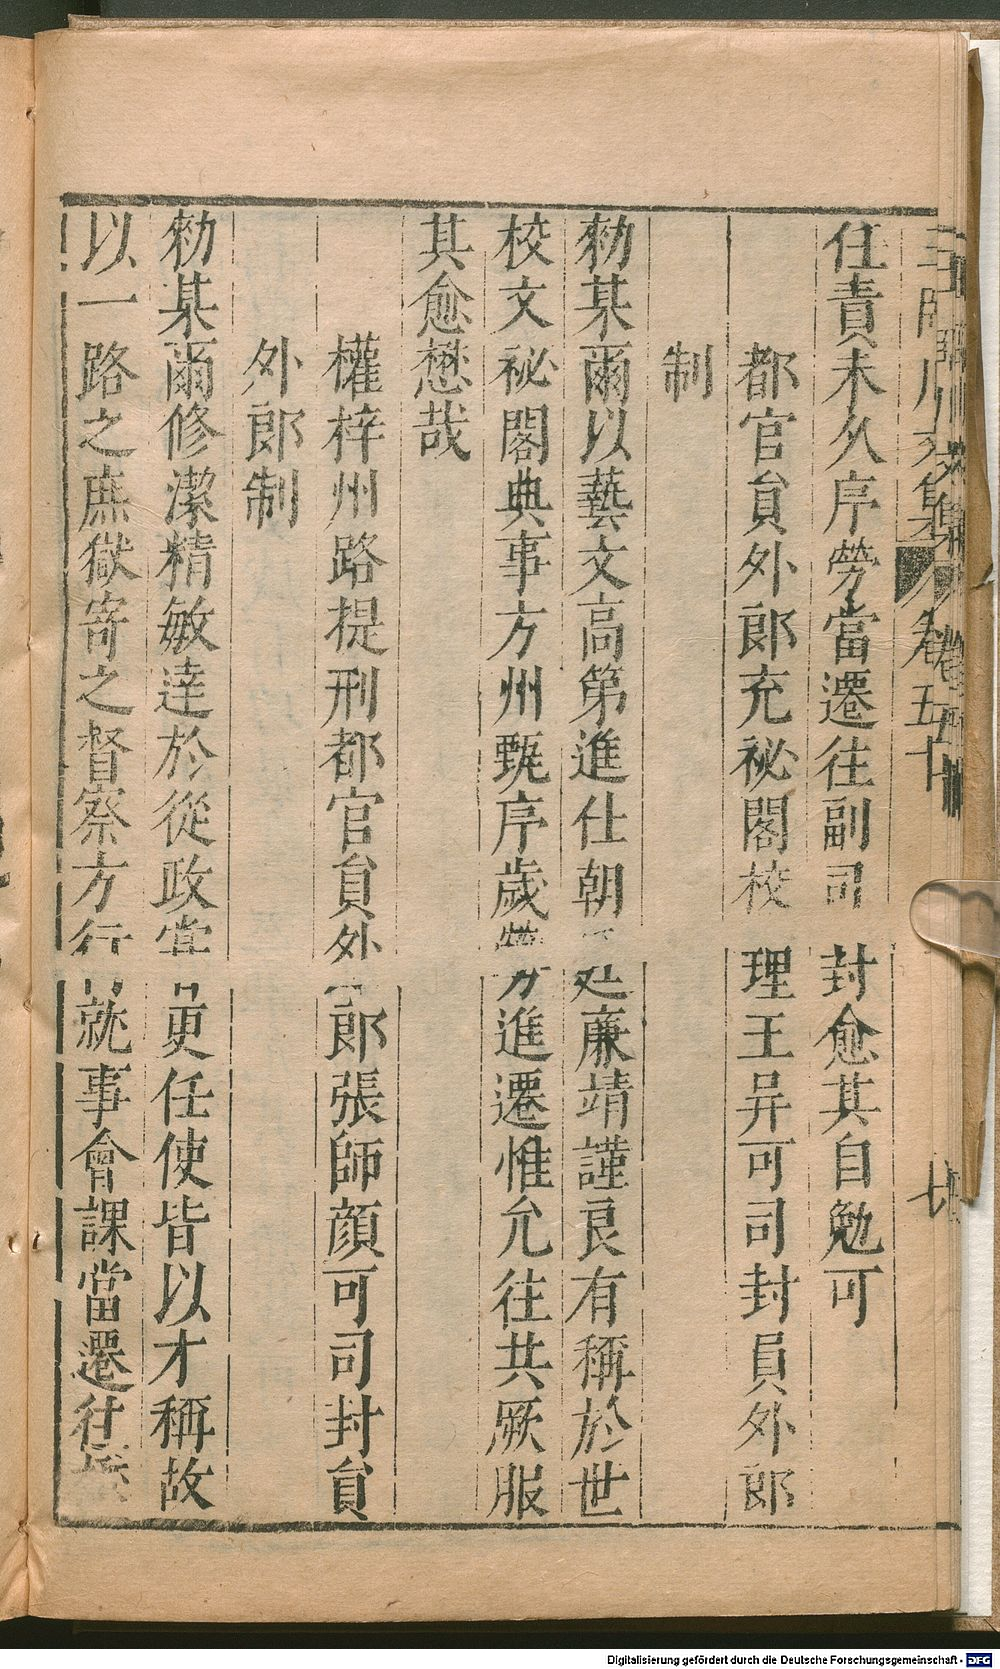 任責未久序勞當遷往副司封愈其自勉可
都官員外郎充祕閣校理王异可司封員外郎
制
勑某爾以藝文高第進仕朝廷廉靖謹良有稱於世
校文祕閣典事方州甄序歲勞進遷惟允往共厥服
其愈懋哉
權梓州路提刑都官員外郎張師顔可司封員
外郎制
勑某爾修潔精敏達於從政當更任使皆以才稱故
以一路之庶獄寄之督察方行就事會課當遷往
卷五十
Digitalisierung gefördert durch die Deutsche Forschungsgemeinschaft - DFG